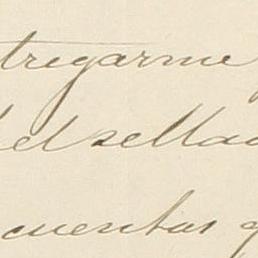 tregarme
del sellad
cuentas q